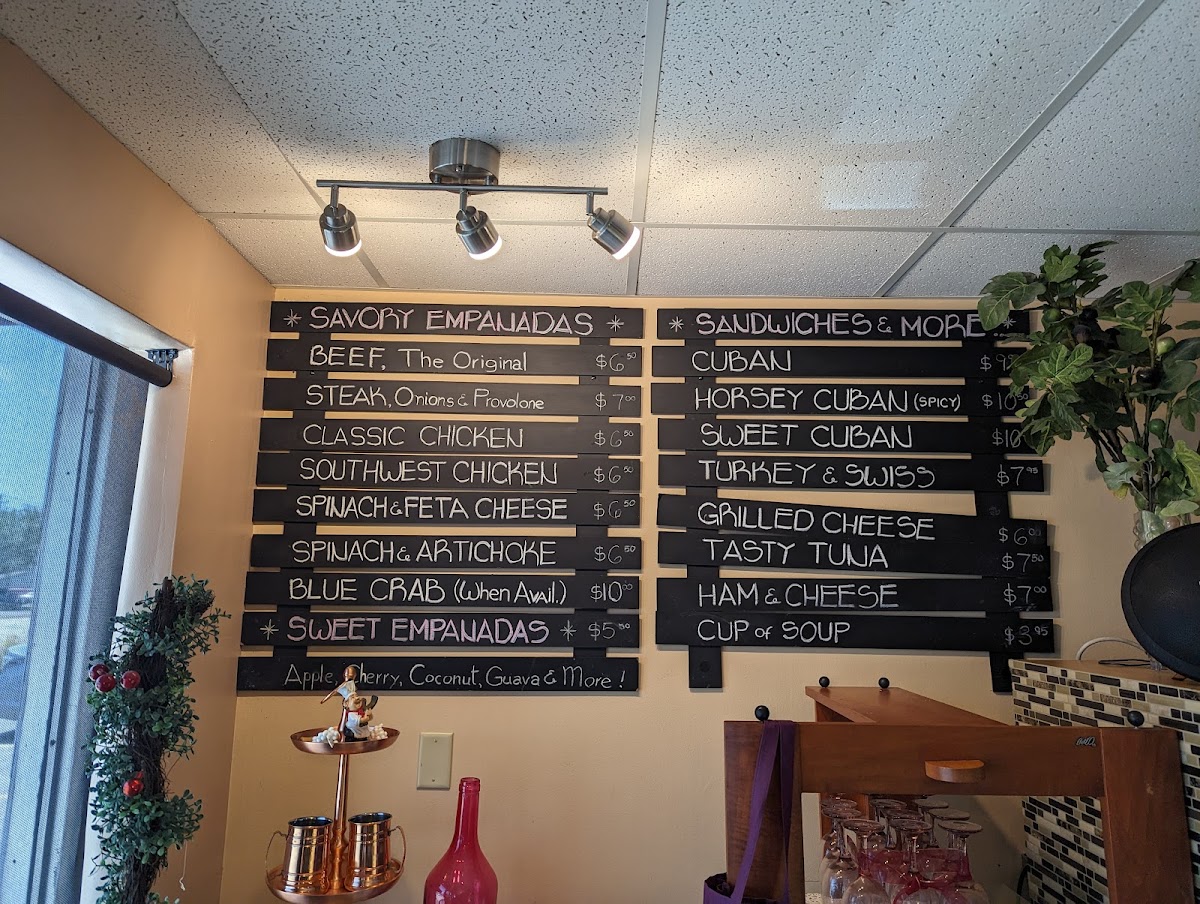 SAVORY EMPANADAS
BEEF, The Original $6.50
STEAK, Onions & Provolone $7.00
CLASSIC CHICKEN $6.50
SOUTHWEST CHICKEN $6.50
SPINACH & FETA CHEESE $6.50
SPINACH & ARTICHOKE $6.50
BLUE CRAB (When Avail.) $10.00
SWEET EMPANADAS $5.50
Apple, Cherry, Coconut, Guava & More!
SANDWICHES & MORE
CUBAN $9
HORSEY CUBAN (SPICY) $10.50
SWEET CUBAN $10
TURKEY & SWISS $7.95
GRILLED CHEESE $6
TASTY TUNA $7.50
HAM & CHEESE $7.00
CUP of SOUP $3.95